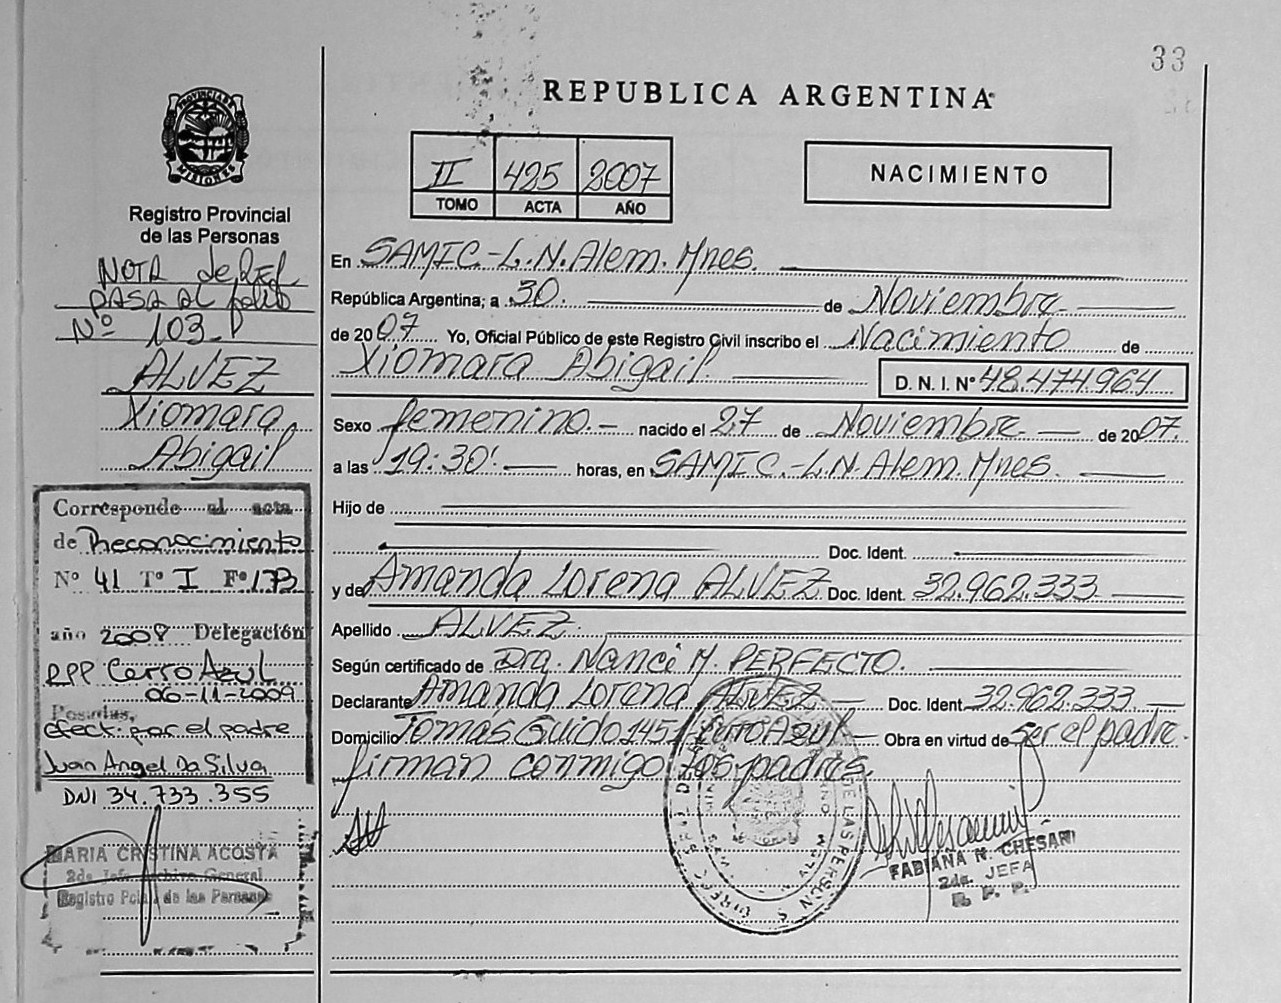 33
REPUBLICA ARGENTINA
PROVINCIA DE MISIONES
II 425 2007
TOMO ACTA AÑO
NACIMIENTO
Registro Provincial
de las Personas
NOTA de REF.
PASA AL folio
Nº 103
ALVEZ
Xiomara
Abigail
Corresponde al acta
de Reconocimiento
Nº 41 Tº I Fº 173
año 2009 Delegación
RPP Cerro Azul
06-11-2009
Posadas,
efect. por el padre
Juan Angel Da Silva
DNI 34.733.355
MARIA CRISTINA ACOSTA
2da. Jefe Archivo General
Registro Pcial. de las Personas
En SAMIC.-L.N.Alem.Mnes.
República Argentina; a 30. de Noviembre
de 2007 Yo, Oficial Público de este Registro Civil inscribo el Nacimiento de
Xiomara Abigail D. N. I. Nº 48.474.964
Sexo femenino.- nacido el 27 de Noviembre de 2007.
a las 19:30' horas, en SAMIC.-L.N.Alem.Mnes.
Hijo de
Doc. Ident.
y de Amanda Lorena ALVEZ Doc. Ident. 32.962.333
Apellido ALVEZ.
Según certificado de Dra. Nanci M. PERFECTO.
Declarante Amanda Lorena ALVEZ Doc. Ident 32.962.333
Domicilio Tomás Guido 145 Cerro Azul Obra en virtud de ser el padre.
firman conmigo los padres.
DE LAS PERSONAS
FABIANA N. CHESARI
2da. JEFA
R. P. P.